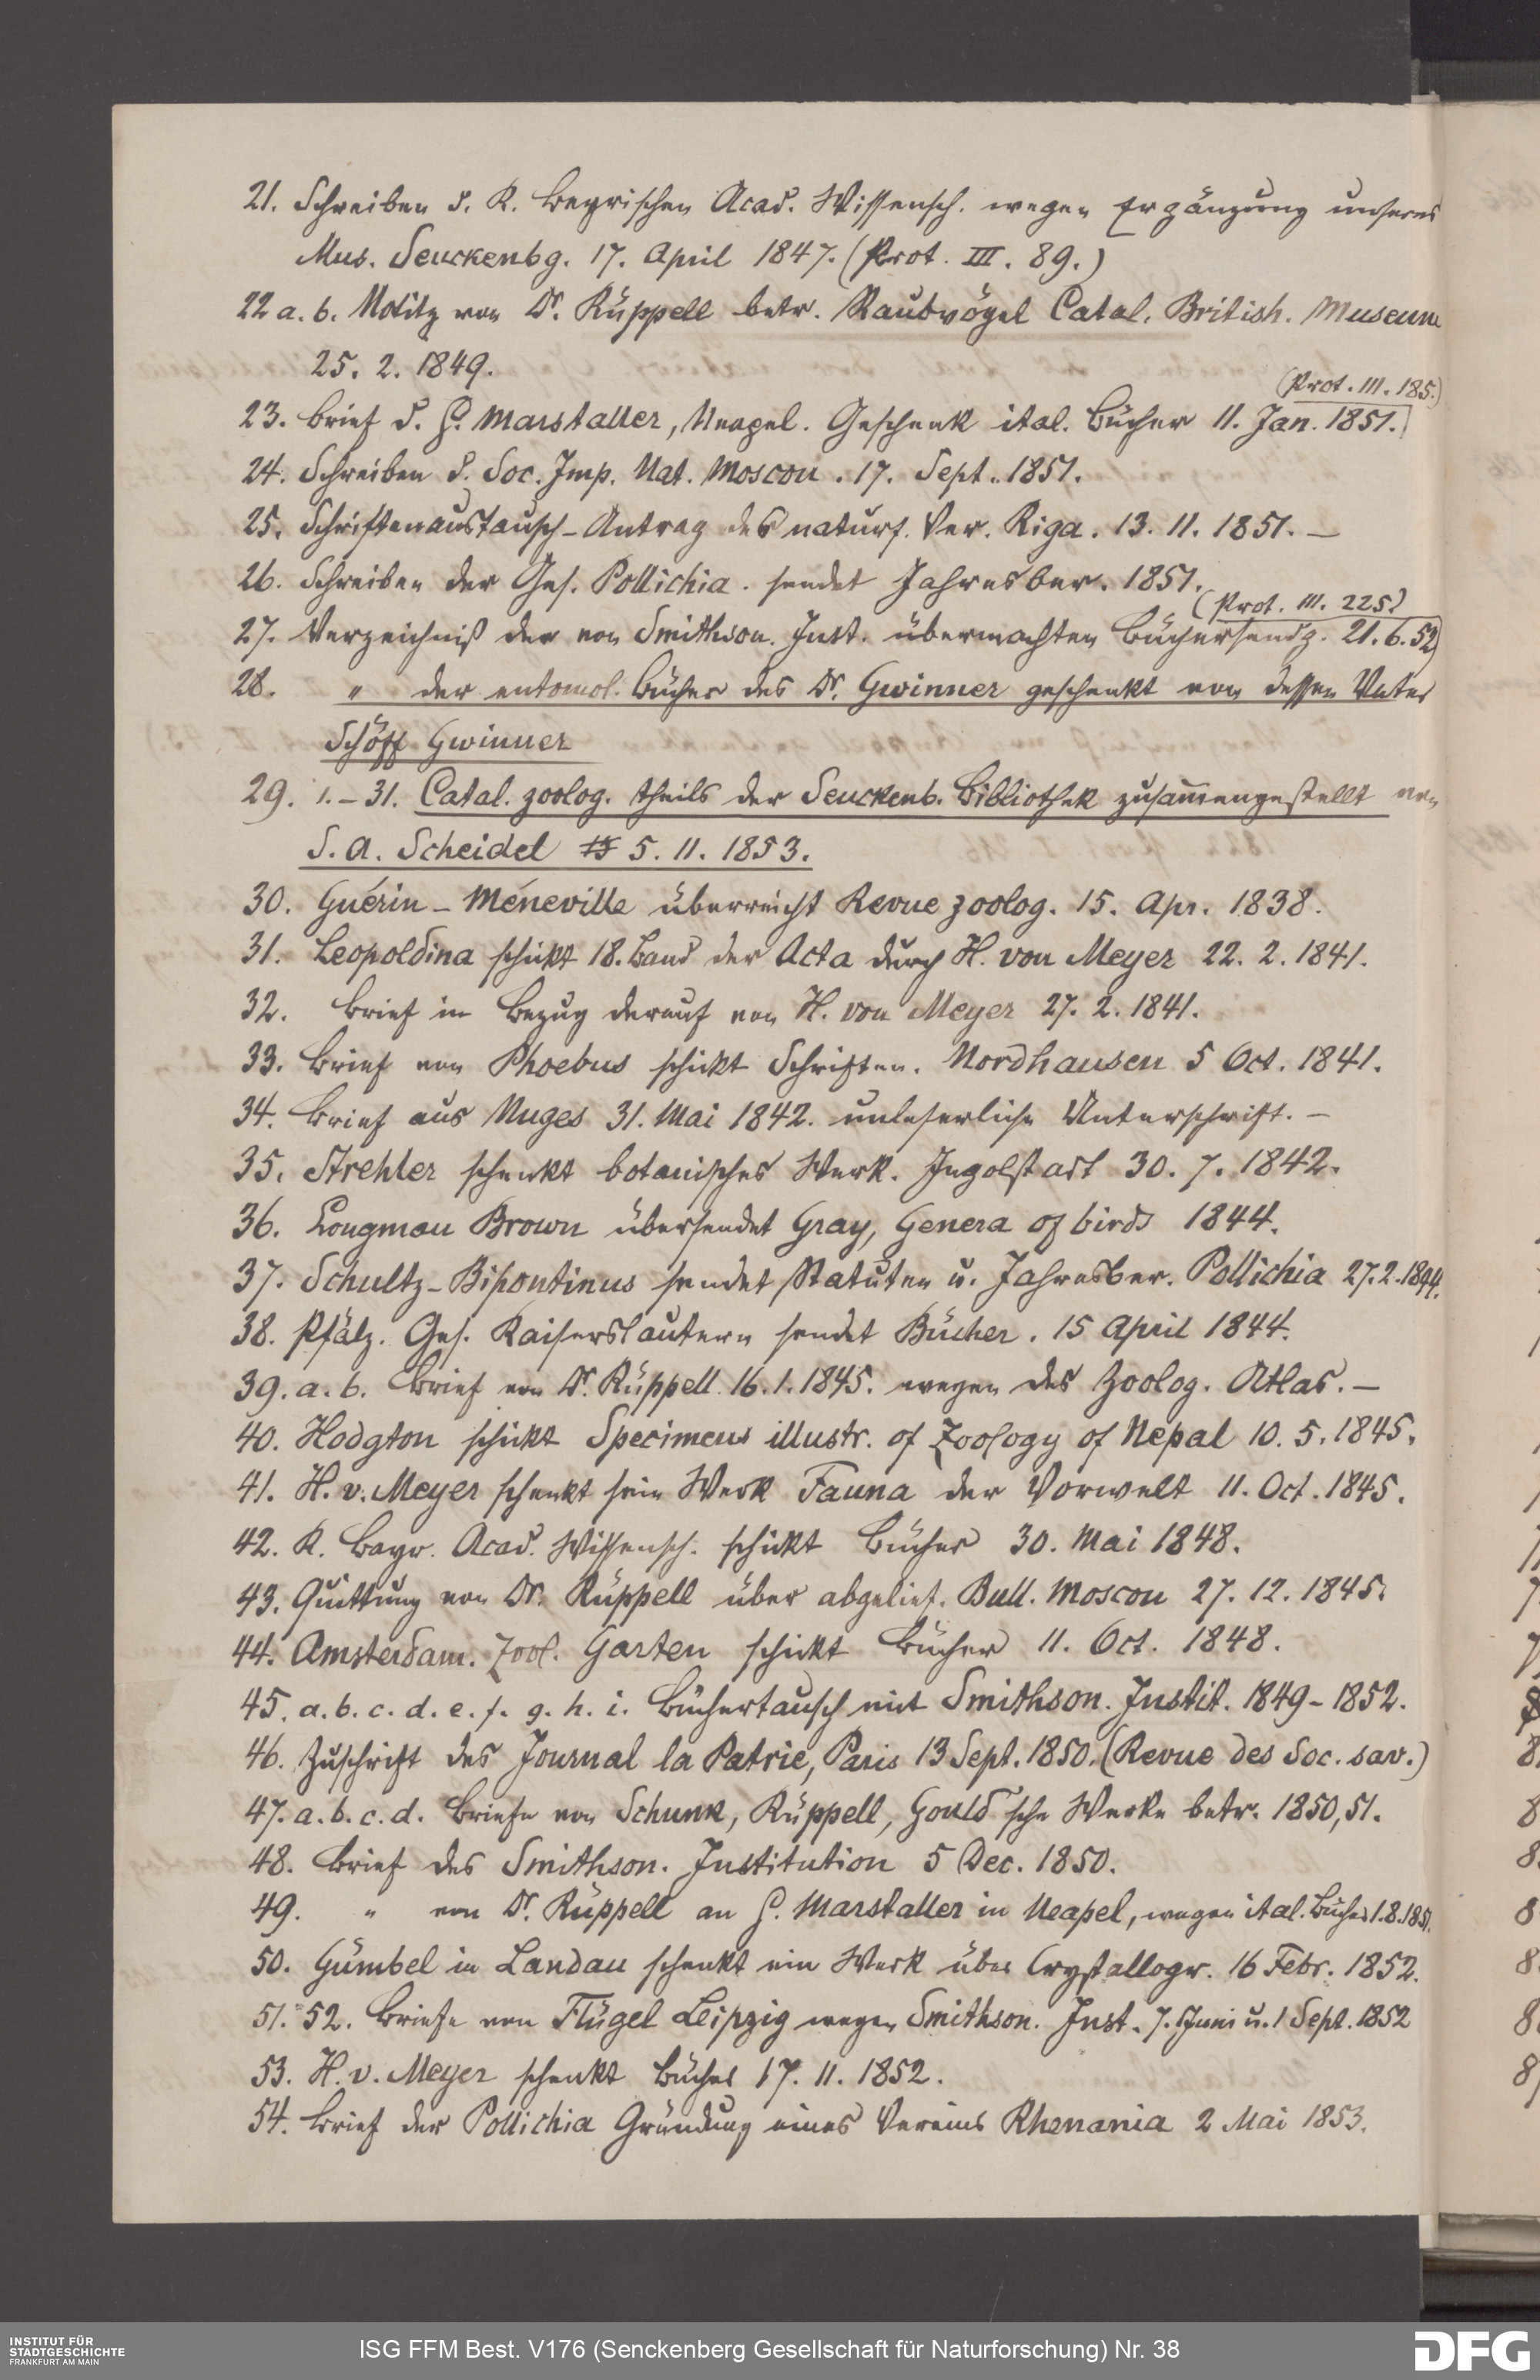 21. Schreiben d. K. Bayrischen Acad. Wissensch. wegen Ergänzung unseres
Mus. Senckenbg. 17. April 1847. (Prot. III. 89.)
22 a. b. Notitz von Dr. Rüppell betr. Raubvögel Catal. British. Museum
25. 2. 1849.
(Prot. III. 185.)
23. Brief d. H. Marstaller, Neapel. Geschenk ital. Bücher 11. Jan. 1851.
24. Schreiben d. Soc. Imp. Nat. Moscou. 17. Sept. 1851.
25. Schriftenaustausch-Antrag des naturf. Ver. Riga. 13. 11. 1851. —
26. Schreiben der Ges. Pollichia. sendet Jahresber. 1851.
(Prot. III. 225.)
27. Verzeichniß der von Smithson. Inst. übermachten Büchersendg. 21. 6. 52
28. " der entomol. Bücher des Dr. Gwinner geschenkt von dessen Vater
Schöff Gwinner
29. 1.–31. Catal. zoolog. theils der Senckenb. Bibliothek zusammengestellt von
S. A. Scheidel 5. 11. 1853.
30. Guérin-Méneville überreicht Revue zoolog. 15. Apr. 1838.
31. Leopoldina schickt 18. Band der Acta durch H. von Meyer 22. 2. 1841.
32. Brief in Bezug darauf von H. von Meyer 27. 2. 1841.
33. Brief von Phoebus schickt Schriften. Nordhausen 5 Oct. 1841.
34. Brief aus Nuges 31. Mai 1842. unleserliche Unterschrift. —
35. Strehler schenkt botanisches Werk. Ingolstadt 30. 7. 1842.
36. Longman Brown übersendet Gray, Genera of birds 1844.
37. Schultz-Bipontinus sendet Statuten u. Jahresber. Pollichia 27. 2. 1844.
38. Pfälz. Ges. Kaiserslautern sendet Bücher. 15 April 1844.
39. a. b. Brief von Dr. Rüppell 16. 1. 1845. wegen des Zoolog. Atlas. —
40. Hodgton schickt Specimens illustr. of Zoology of Nepal 10. 5. 1845.
41. H. v. Meyer schenkt sein Werk Fauna der Vorwelt 11. Oct. 1845.
42. K. Bayr. Acad. Wissensch. schickt Bücher 30. Mai 1848.
43. Quittung von Dr. Rüppell über abgelief. Bull. Moscou 27. 12. 1845.
44. Amsterdam. Zool. Garten schickt Bücher 11. Oct. 1848.
45. a. b. c. d. e. f. g. h. i. Büchertausch mit Smithson. Instit. 1849–1852.
46. Zuschrift des Journal la Patrie, Paris 13 Sept. 1850. (Revue des Soc. sav.)
47. a. b. c. d. Briefe von Schunk, Rüppell, Gould'sche Werke betr. 1850, 51.
48. Brief des Smithson. Institution 5 Dec. 1850.
49. " von Dr. Rüppell an H. Marstaller in Neapel, wegen ital. Bücher 1. 8. 1851.
50. Gümbel in Landau schenkt ein Werk über Crystallogr. 16 Febr. 1852.
51. 52. Briefe von Flügel Leipzig wegen Smithson. Inst. 7. Juni u. 1 Sept. 1852
53. H. v. Meyer schenkt Bücher 17. 11. 1852.
54. Brief der Pollichia Gründung eines Vereins Rhenania 2 Mai 1853.
INSTITUT FÜR
STADTGESCHICHTE
FRANKFURT AM MAIN
ISG FFM Best. V176 (Senckenberg Gesellschaft für Naturforschung) Nr. 38
DFG